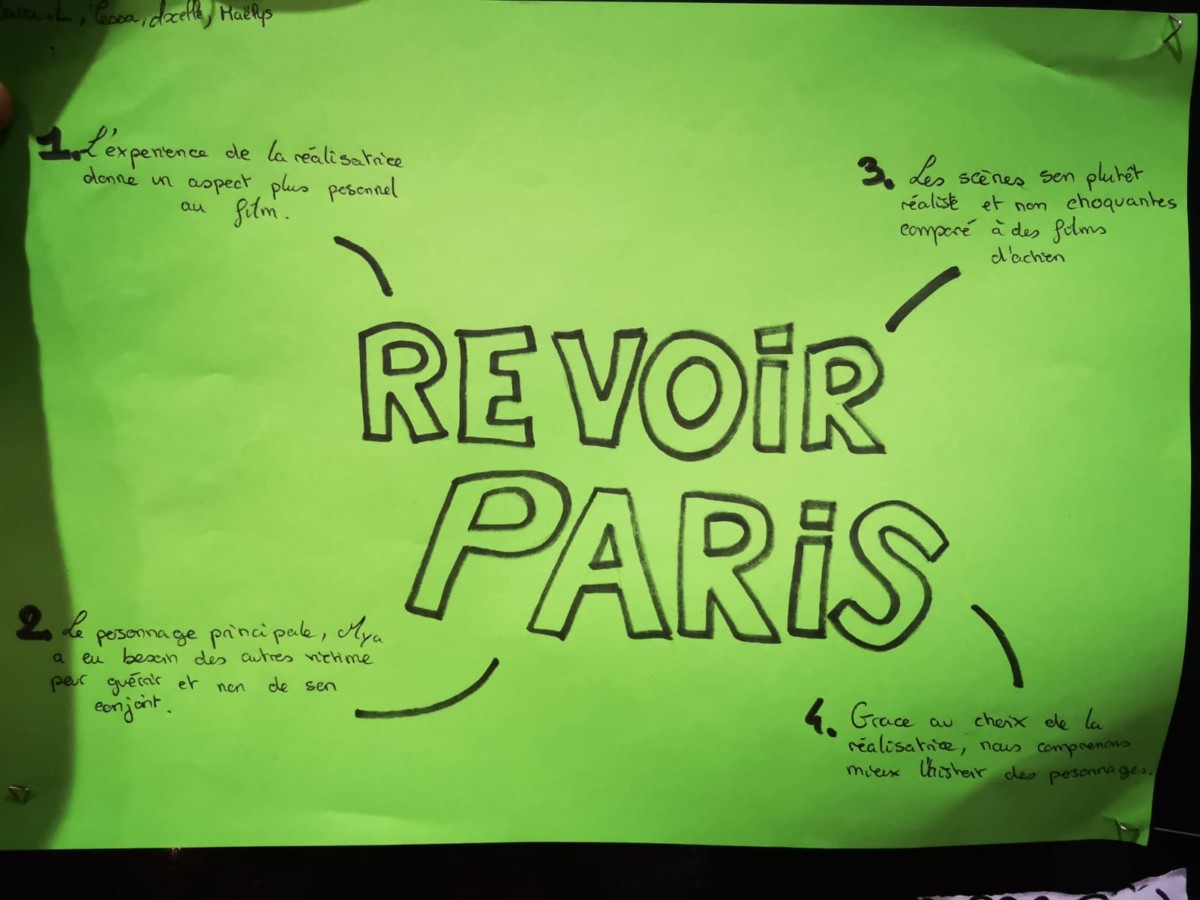 Tessa, Axelle, Maëlys
1. L'experience de la réalisatrice
donne un aspect plus pesonnel
au film.
3. Les scènes son plutôt
réaliste et non choquantes
comparé à des films
d'action
REVOIR
PARIS
2. Le pesonnage principale, Mya
a eu besoin des autres victime
pour guérir et non de son
conjoint.
4. Grace au choix de la
réalisatrice, nous comprenons
mieux l'histoir des pesonnages.